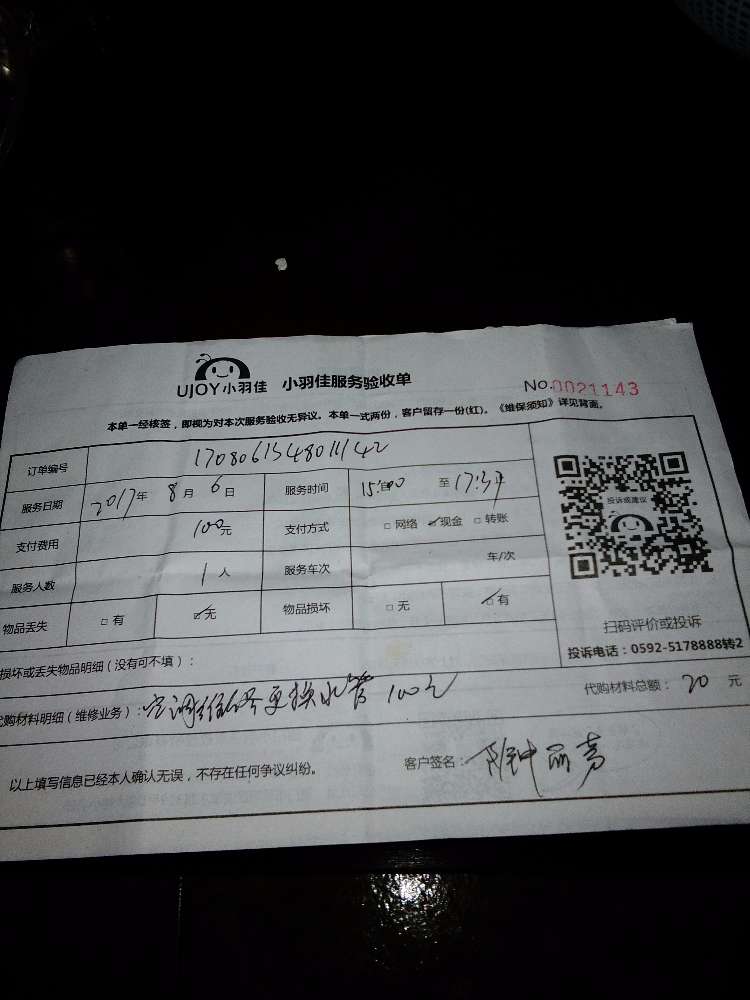 UJOY小羽佳 小羽佳服务验收单 No.0021143
本单一经核签，即视为对本次服务验收无异议。本单一式两份，客户留存一份(红)。《维保须知》详见背面。
订单编号 1708061548011142
服务日期 2017年 8月 6日 服务时间 15:00 至 17:37
支付费用 100元 支付方式 □网络 ☑现金 □转账
服务人数 1人 服务车次 车/次
物品丢失 □有 ☑无 物品损坏 □无 ☑有
投诉或建议
扫码评价或投诉
投诉电话：0592-5178888转2
损坏或丢失物品明细（没有可不填）：
代购材料明细（维修业务）：空调维修更换水管 100元 代购材料总额：20 元
以上填写信息已经本人确认无误，不存在任何争议纠纷。 客户签名：